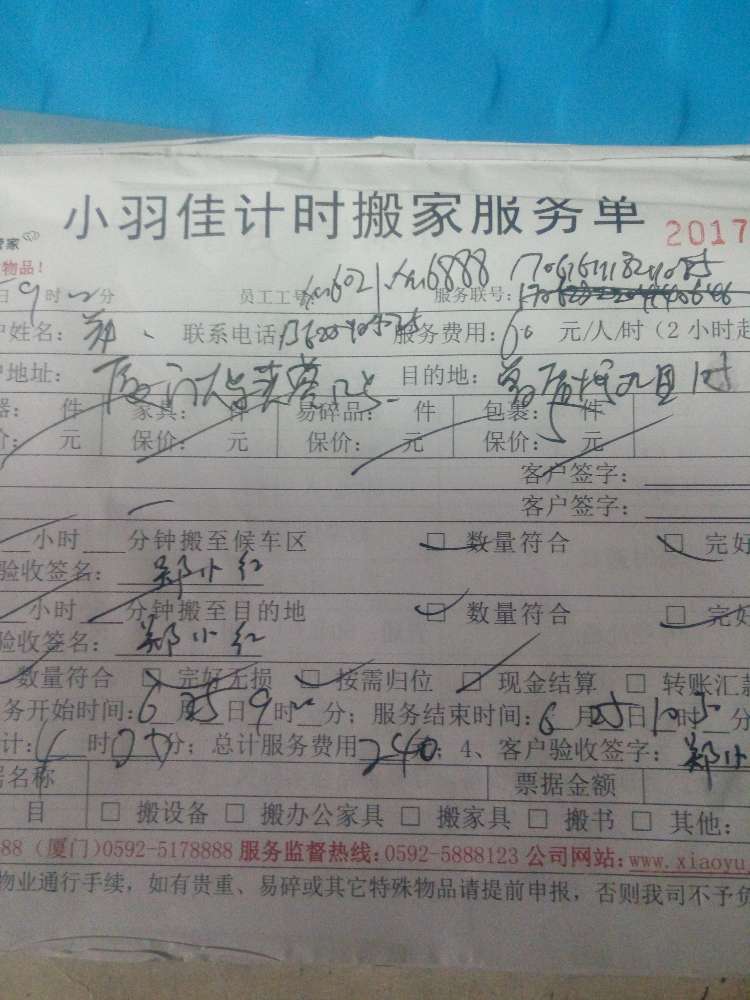 小羽佳计时搬家服务单 2017
管家
物品！
日9时 分 员工工号: 服务联号:
户姓名: 郑 联系电话: 服务费用:60元/人/时（2小时起
户地址: 厦门 目的地:
器: 件 家具: 件 易碎品: 件 包裹:5件
价: 元 保价: 元 保价: 元 保价: 元
客户签字:
客户签字:
小时 分钟搬至候车区 ☑ 数量符合 ☑ 完好
验收签名: 郑小红
小时 分钟搬至目的地 ☑ 数量符合 ☑ 完好
验收签名: 郑小红
数量符合 ☑ 完好无损 ☑ 按需归位 ☑ 现金结算 □ 转账汇款
务开始时间:6月25日9时 分；服务结束时间:6月25日10时 分
计: 时 分；总计服务费用240元；4、客户验收签字: 郑小
名称 票据金额
目 □ 搬设备 □ 搬办公家具 □ 搬家具 □ 搬书 □ 其他:
88（厦门）0592-5178888 服务监督热线:0592-5888123 公司网站:www.xiaoyu
物业通行手续，如有贵重、易碎或其它特殊物品请提前申报，否则我司不予负